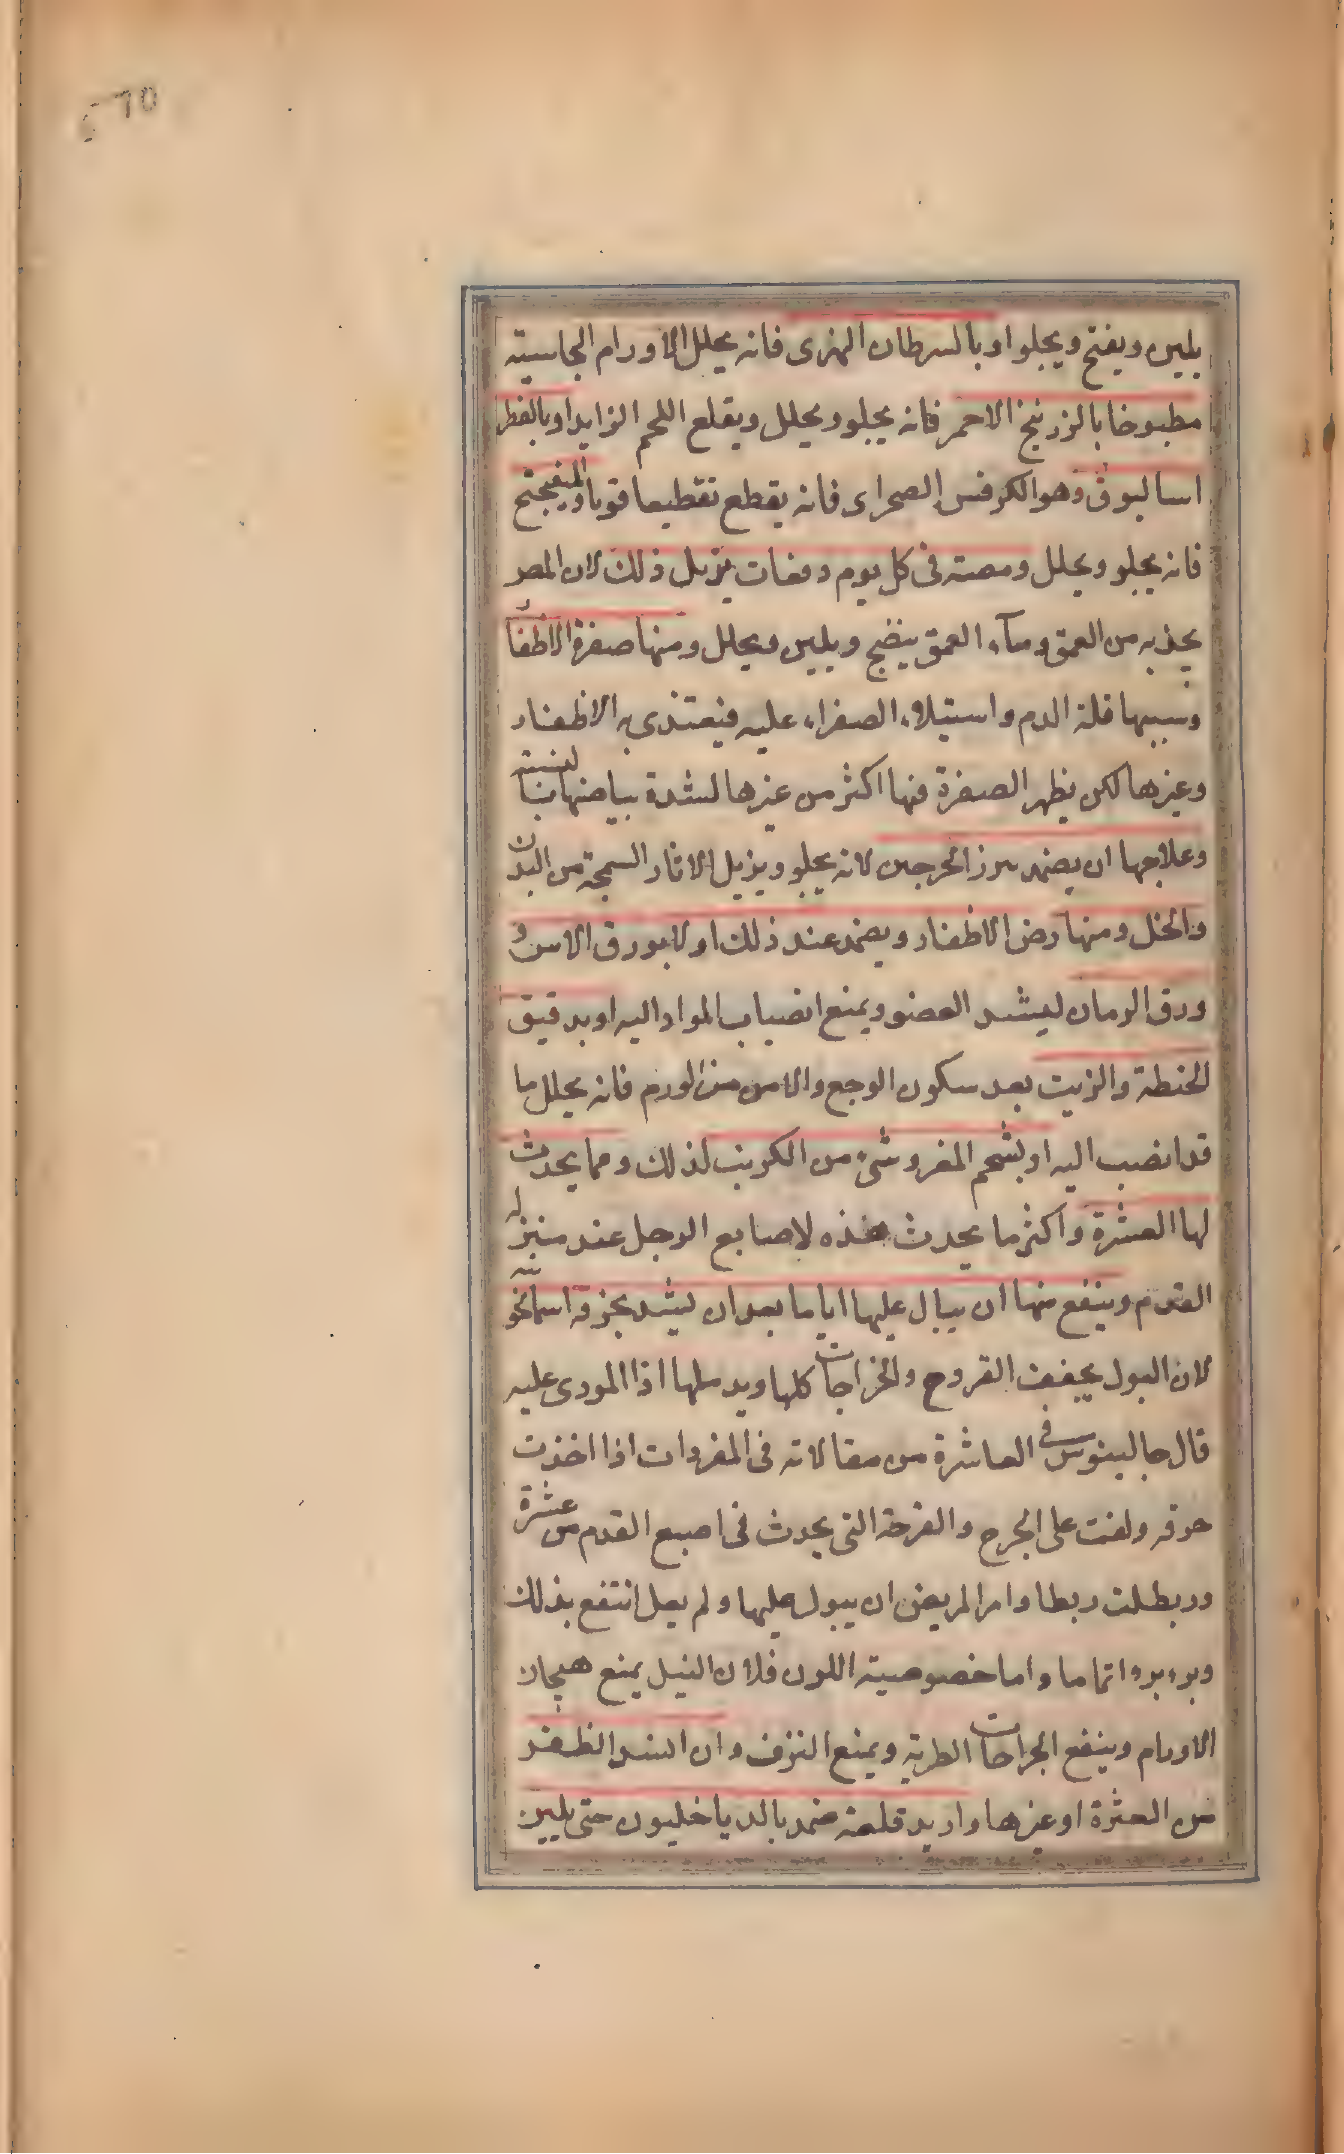 يلين ويفتح ويجلو او بالسرطان النهرى فانه يحلل الاورام الجاسيته
مطبوخا بالزرنيخ الاحمر فانه يجلو ويحلل ويقلع اللحم الزايد او بالفطر
اساليوق وهو الكرفس الصحراى فانه يقطع تقطيعا قويا
فانه يجلو ويحلل ومصته فى كل يوم دفعات يزيل ذلك لان المص
يجذبه من العمق وماء العمق ينضج ويلين ويحلل ومنها صفرة الاظفار
وسببها قلة الدم واستيلاء الصفراء عليه فيغتذى به الاظفار
وغيرها لكن يظهر الصفرة فيها اكثر من غيرها لشدة بياضها
وعلاجها ان يضمد ببرز الجرجير لانه يجلو ويزيل الاثار السمجة من البدن
والخل ومنها رض الاظفار ويضمد عند ذلك اولا بورق الاس و
ورق الرمان ليشد العضو ويمنع انصباب المواد اليه او بدقيق
الحنطة والزيت بعد سكون الوجع والامن من الورم فانه يحلل ما
قد انصب اليه او بشحم المغر وشئ من الكبريت لذلك ومما يحدث
لها العثرة واكثر ما يحدث هذه لاصابع الرجل عند
القدم وينفع منها ان يبال عليها اياما بعد ان يشد بخرقة اسمانجونية
لان البول يجفف القروح والخراجات كلها ويدملها اذا المودى عليه
قال جالينوس فى العاشرة من مقالاته فى المفردات اذا اخذت
خرقه ولفت على الجرح والقرحة التى يحدث فى اصبع القدم من عثرة
وربطلت ربطا وامر المريض ان يبول عليها ولم يحل انتفع بذلك
وبرء برءا تاما واما خصوصيته اللون فلان النيل يمنع هيجان
الاورام وينفع الجراحات الطرية ويمنع النزف وان الظفر
من العثرة او غيرها واريد قلعه ضمد بالدياخليون حتى يلين